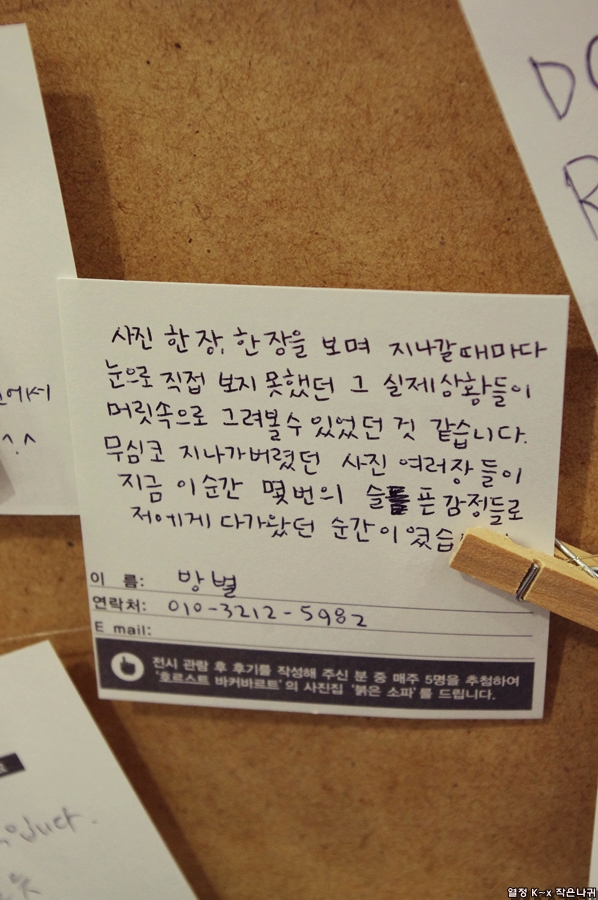 DO
R
에서
^.^
사진 한장, 한장을 보며 지나갈때마다
눈으로 직접 보지 못했던 그 실제상황들이
머릿속으로 그려볼수 있었던 것 같습니다.
무심코 지나가버렸던 사진 여러장들이
지금 이순간 몇번의 슬픈감정들로
저에게 다가왔던 순간이였습
이 름: 방별
연락처: 010-3212-5982
E mail:
전시 관람 후 후기를 작성해 주신 분 중 매주 5명을 추첨하여
'호르스트 바커바르트'의 사진집 '붉은 소파'를 드립니다.
입니다.
열정 K-x 작은나귀